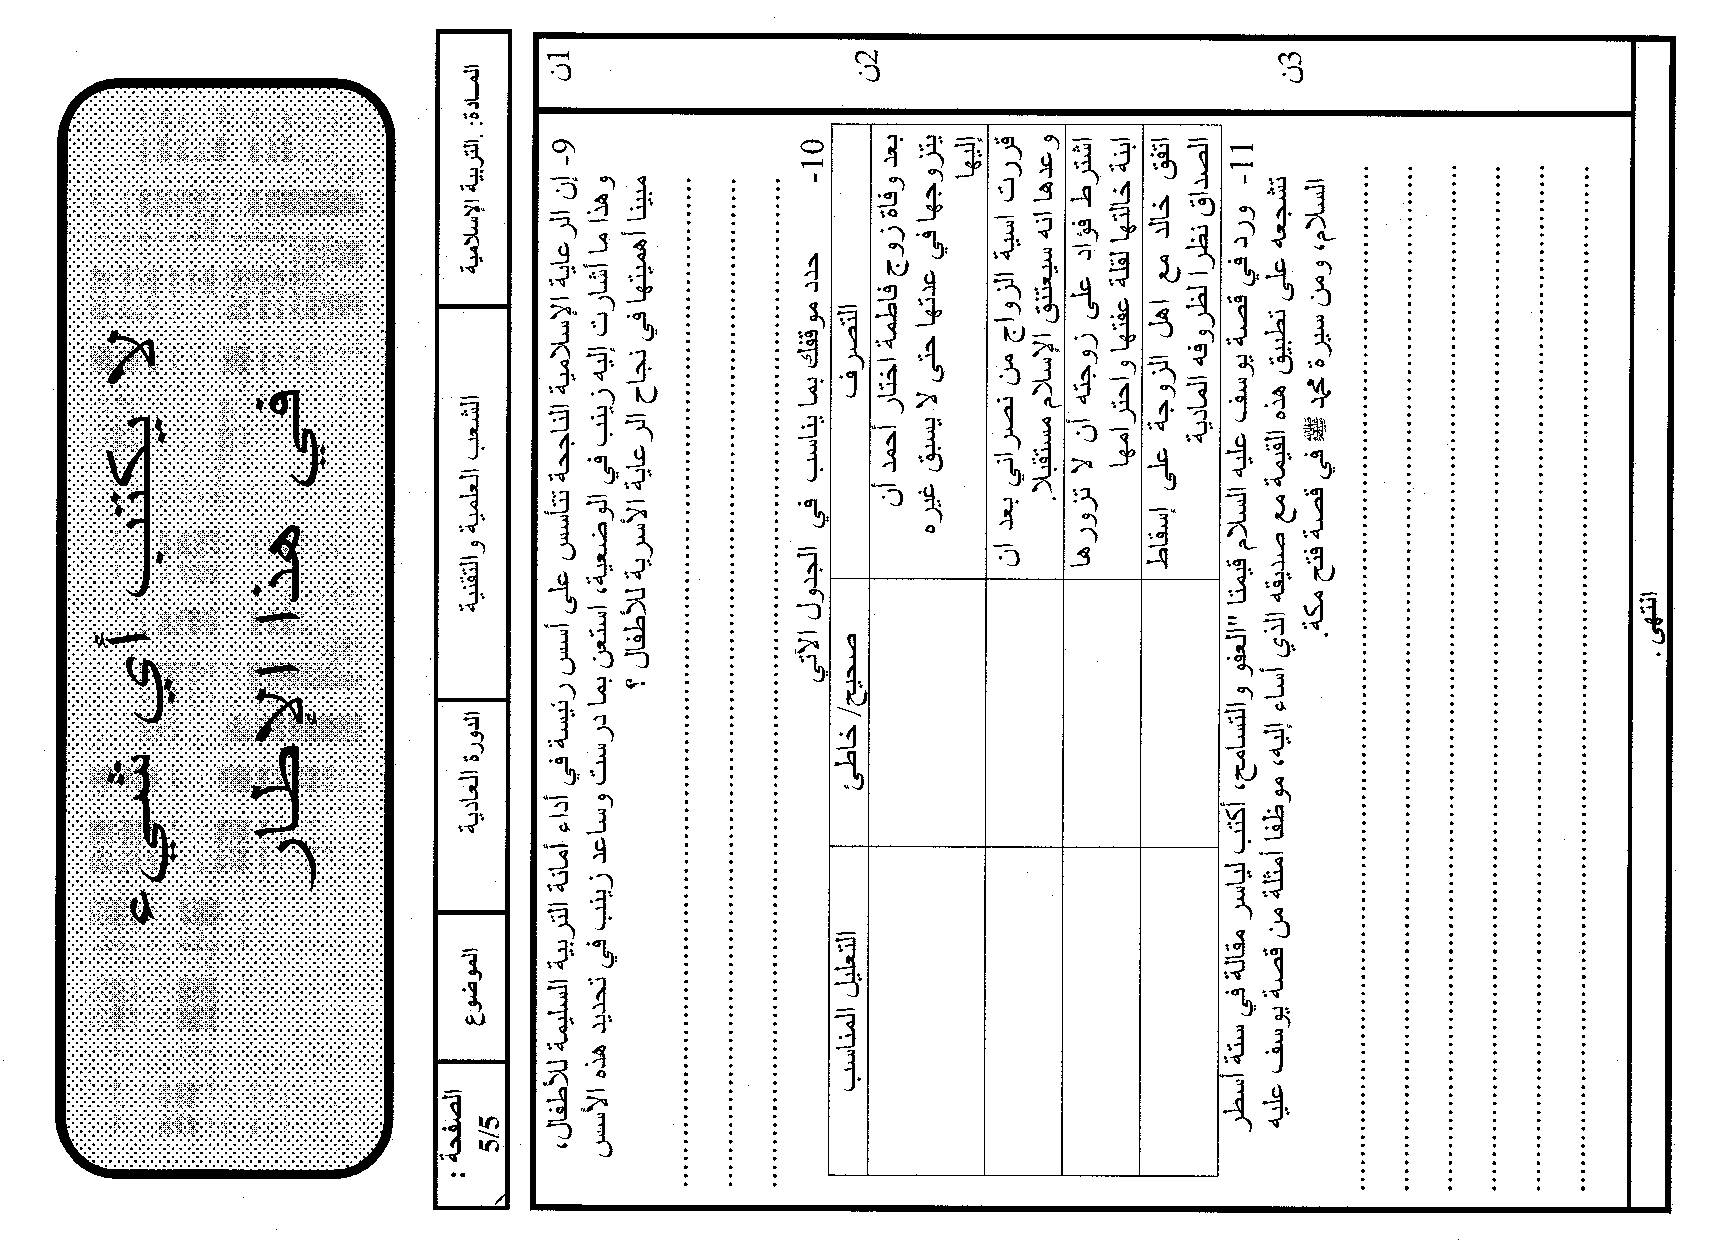 لا يكتب أي شيء
في هذا الإطار
المادة: التربية الإسلامية
الشعب العلمية والتقنية
الدورة العادية
الموضوع
الصفحة :
5/5
1ن
9- إن الرعاية الإسلامية الناجحة تتأسس على أسس رئيسة في أداء أمانة التربية السليمة للأطفال،
وهذا ما أشارت إليه زينب في الوضعية، استعن بما درست وساعد زينب في تحديد هذه الأسس
مبينا أهميتها في نجاح الرعاية الأسرية للأطفال ؟
2ن
10- حدد موقفك بما يناسب في الجدول الآتي
التصرف
صحيح/ خاطئ
التعليل المناسب
بعد وفاة زوج فاطمة اختار احمد أن
يتزوجها في عدتها حتى لا يسبق غيره
إليها
قررت اسية الزواج من نصراني بعد ان
وعدها انه سيعتنق الإسلام مستقبلا.
اشترط فؤاد على زوجته أن لا تزورها
ابنة خالتها لقلة عفتها واحترامها
اتفق خالد مع اهل الزوجة على إسقاط
الصداق نظرا لظروفه المادية
3ن
11- ورد في قصة يوسف عليه السلام قيمتا "العفو والتسامح، أكتب لياسر مقالة في ستة أسطر
تشجعه على تطبيق هذه القيمة مع صديقه الذي أساء إليه، موظفا أمثلة من قصة يوسف عليه
السلام، ومن سيرة محمد ﷺ في قصة فتح مكة.
انتهى.